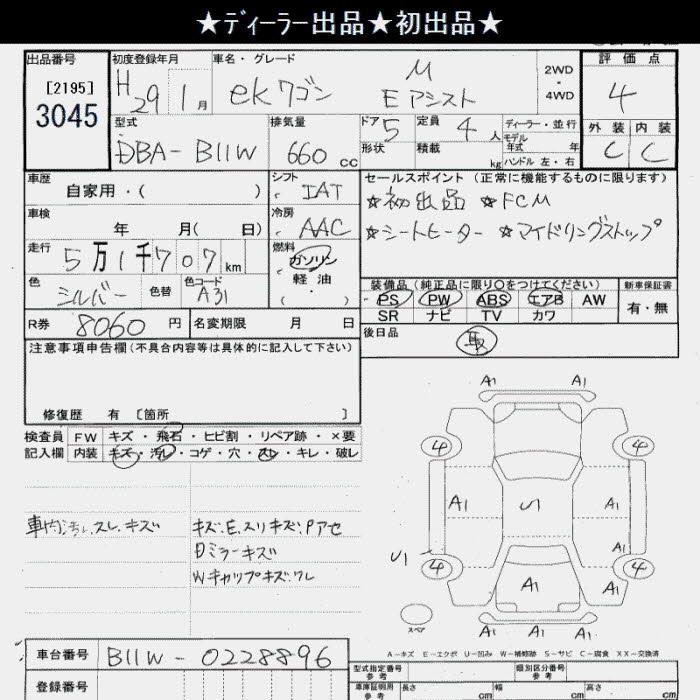 ★ディーラー出品★初出品★
出品番号 初度登録年月 車名・グレード 評価点
[2195] 3045 H29 1月 ekワゴン M Eアシスト 2WD・4WD 4
型式 排気量 ドア 定員 ディーラー・並行 外装 内装
DBA-B11W 660cc 5 4人 モデル年式 年 C C
形状 積載 kg ハンドル 左・右
車歴 シフト セールスポイント(正常に機能するものに限ります)
自家用・( ) IAT ★初出品 ★FCM
車検 冷房 ★シートヒーター ★アイドリングストップ
年 月( 日) AAC
走行 燃料
5万1千707km ガソリン
軽油
( ・ )
色 色替 色コード 装備品(純正品に限り○をつけてください) 新車保証書
シルバー A31 PS PW ABS エアB AW 有・無
SR ナビ TV カワ
R券 8060円 名変期限 月 日 後日品
取
注意事項申告欄(不具合内容等は具体的に記入して下さい)
修復歴 有 [箇所 ]
検査員 FW キズ・飛石・ヒビ割・リペア跡・×要
記入欄 内装 キズ・汚レ・コゲ・穴・スレ・キレ・破レ
車内汚レ、スレ、キズ
キズ、E、スリキズ、Pアセ
Dミラーキズ
Wキャップキズ、ワレ
A1 A1
4 4
A1 U1 A1
U1 A1
4 4
A1 A1
スペア A1 A1 A1
A-キズ E-エクボ U-凹み W-補修跡 S-サビ C-腐食 XX-交換済
車台番号 B11W-0228896
登録番号
型式指定番号 参考 類別区分番号 参考
車庫証明用 参考 長さ cm 幅 cm 高さ cm